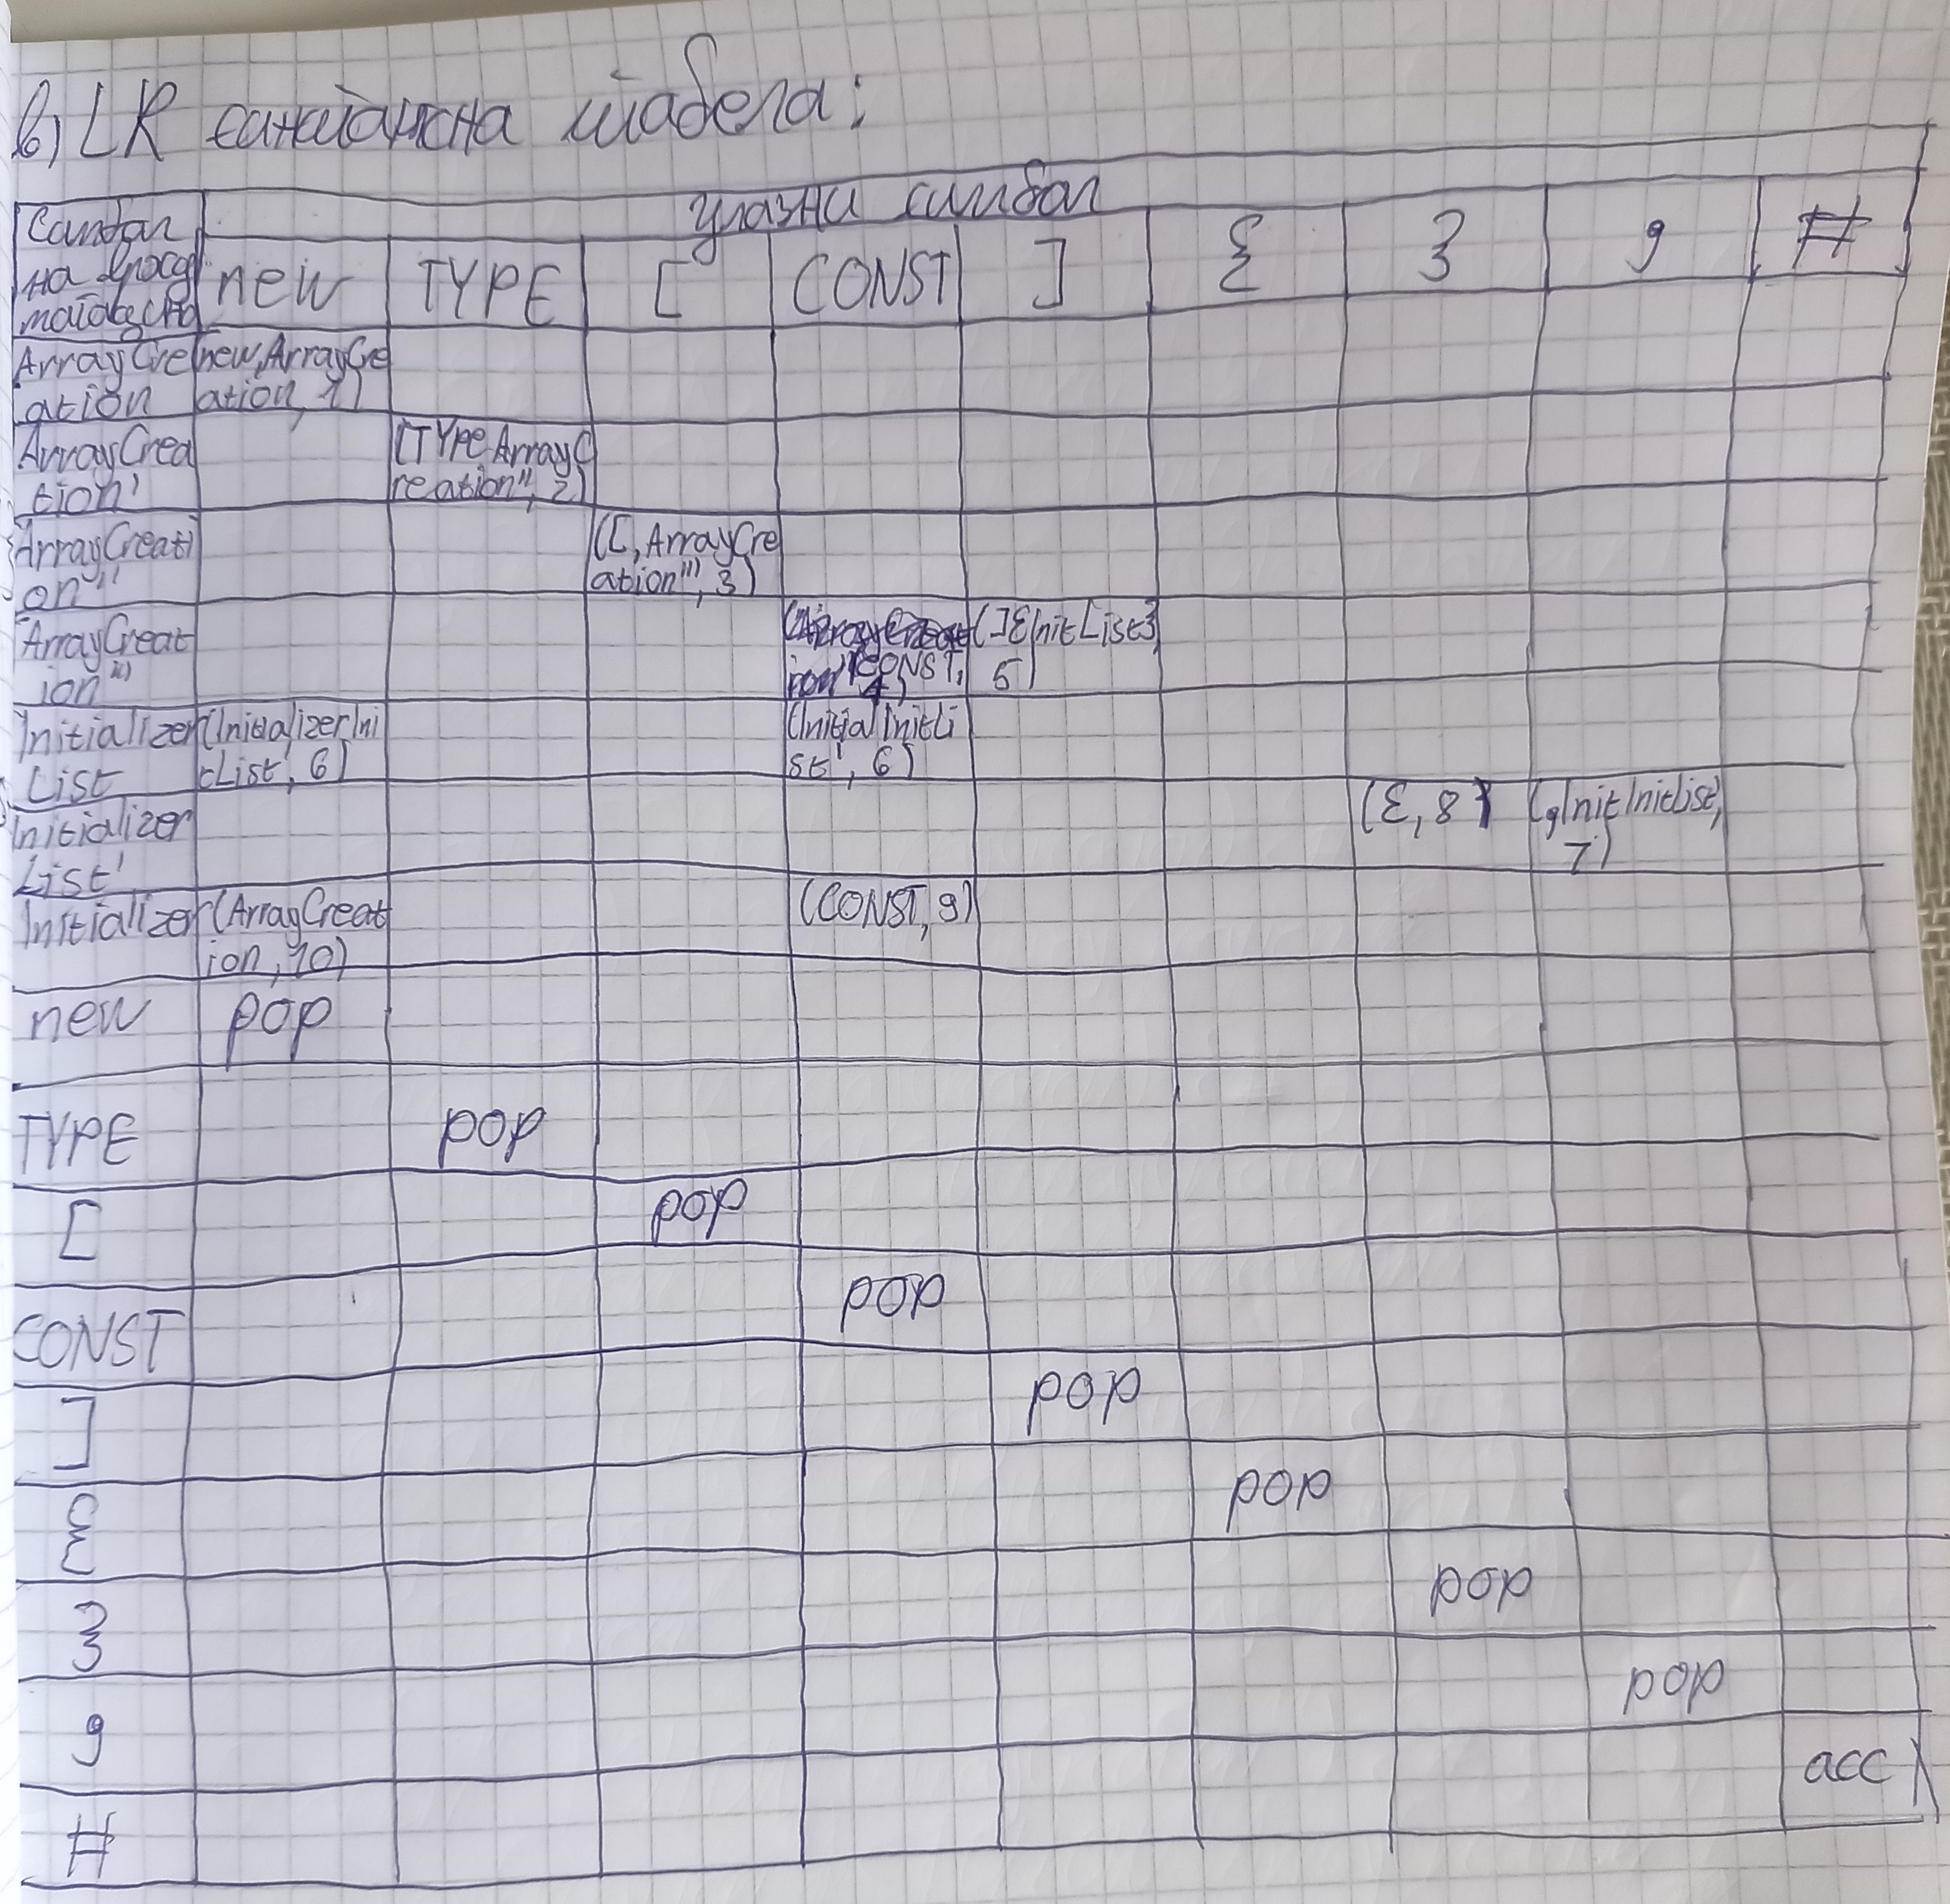 в) LR синтаксна табела:
Симбол на врху магацина улазни симбол
new TYPE [ CONST ] { } , #
ArrayCreation new,ArrayCreation', 1)
ArrayCreation' (TYPE ArrayCreation'', 2)
ArrayCreation'' ([, ArrayCreation''', 3)
ArrayCreation''' CONST, 4) (]{InitList} 5)
Initializer List (InitializerInitList', 6) (Initial InitList', 6)
Initializer List' (ε, 8) (,InitInitList, 7)
Initializer (ArrayCreation, 10) (CONST, 9)
new pop
TYPE pop
[ pop
CONST pop
] pop
{ pop
} pop
, pop
# acc